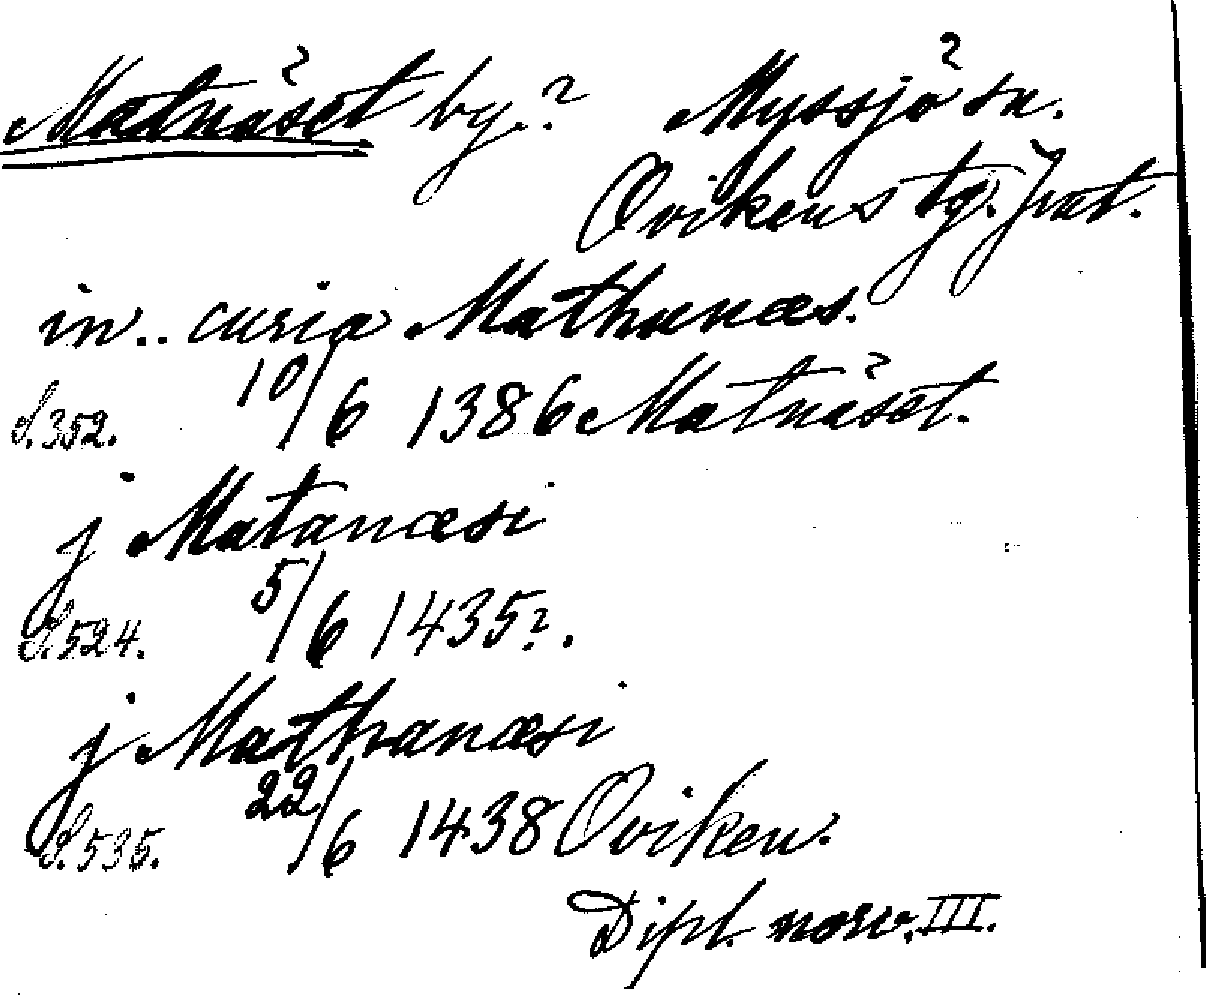 Matnäset by.? Myssjö sn.
Ovikens tg. Jmt.
in.. curia Mathanæs.
S. 352. 10/6 1386 Matnäset.
j Matanæsi
S. 524. 5/6 1435?.
j Mathanæsi
S. 535. 22/6 1438 Oviken.
Dipl. norv. III.